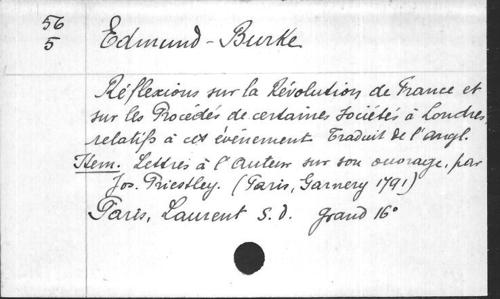 56
5
Edmund-Burke
Réflexions sur la Révolution de France et
sur les Procédés de certaines sociétés à Londres,
relatifs à cet événement Traduit de l'angl.
Item. Lettres à l'Auteur sur son ouvrage, par
Jos. Priestley. (Paris, Garnery 1791)
Paris, Laurent s. d. grand 16°